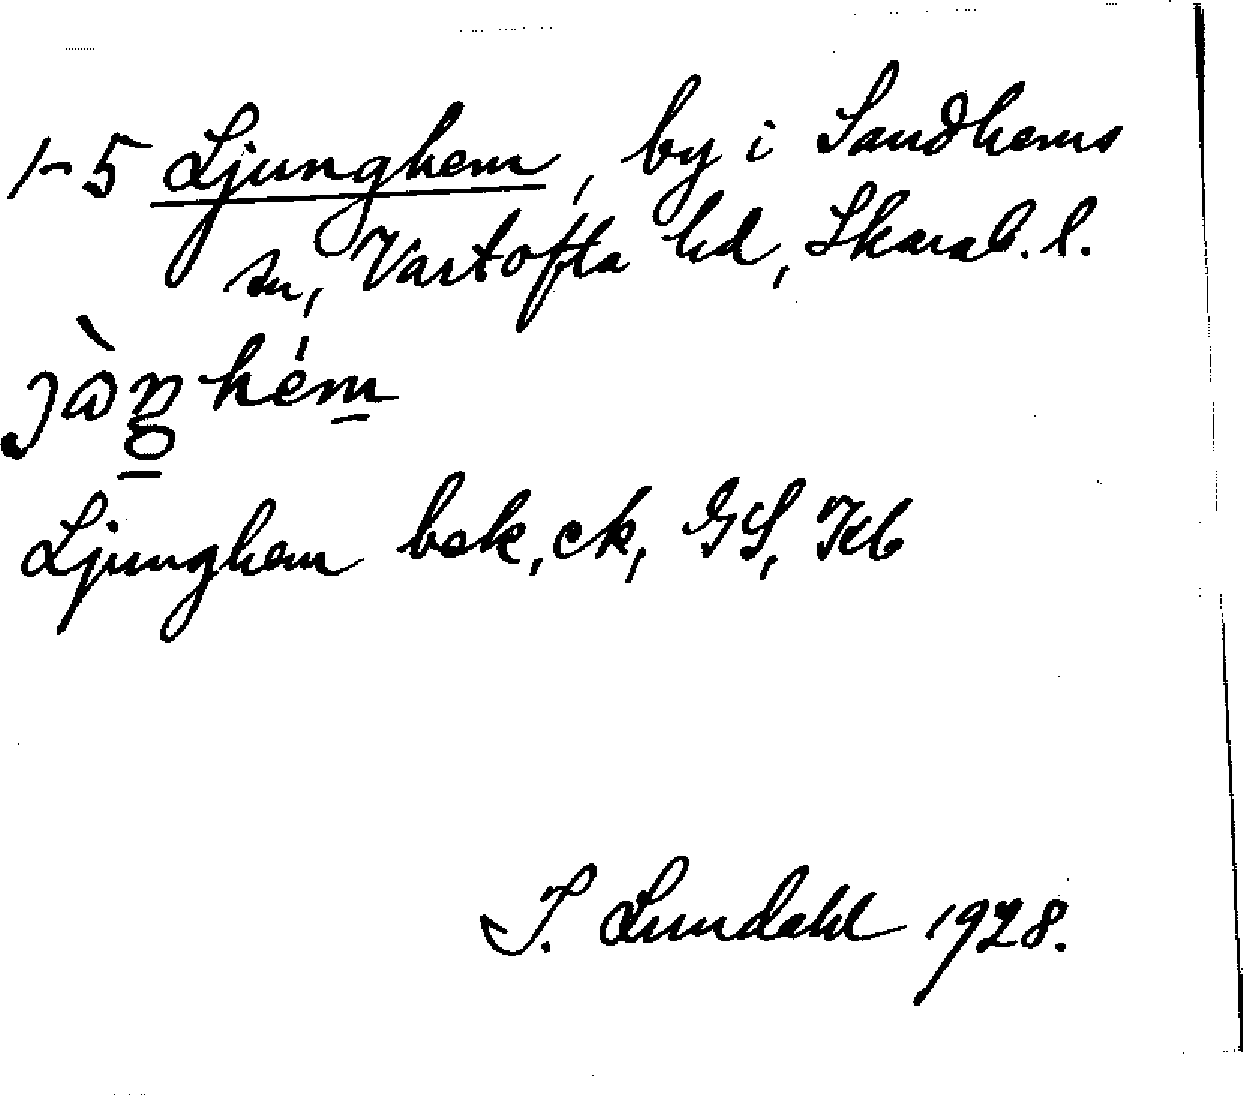 1-5 Ljunghem, by i Sandhems
sn, Vartofta hd, Skarab. l.
Ljunghem bok, ek, GS, Kb
I. Lundahl 1928.